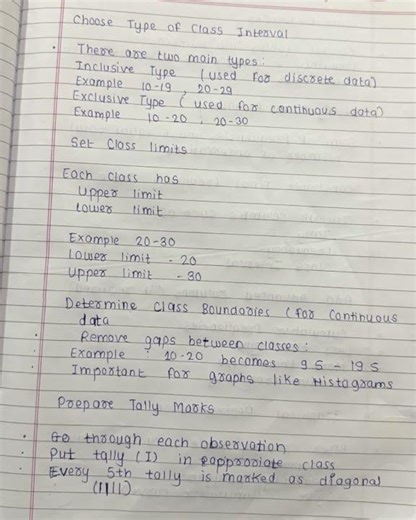 Choose Type of Class Interval
• There are two main types:
Inclusive Type (used for discrete data)
Example 10-19, 20-29
Exclusive Type (used for continuous data)
Example 10-20, 20-30
Set Class limits
Each class has
Upper limit
Lower limit
Example 20-30
Lower limit - 20
Upper limit - 30
Determine Class Boundaries (for continuous
data
Remove gaps between classes:
• Example 10-20 becomes 9 5 - 19 5
• Important for graphs like Histograms
Prepare Tally Marks
• Go through each observation
• Put tally (I) in eappropriate class
• Every 5th tally is marked as diagonal
(IIII)